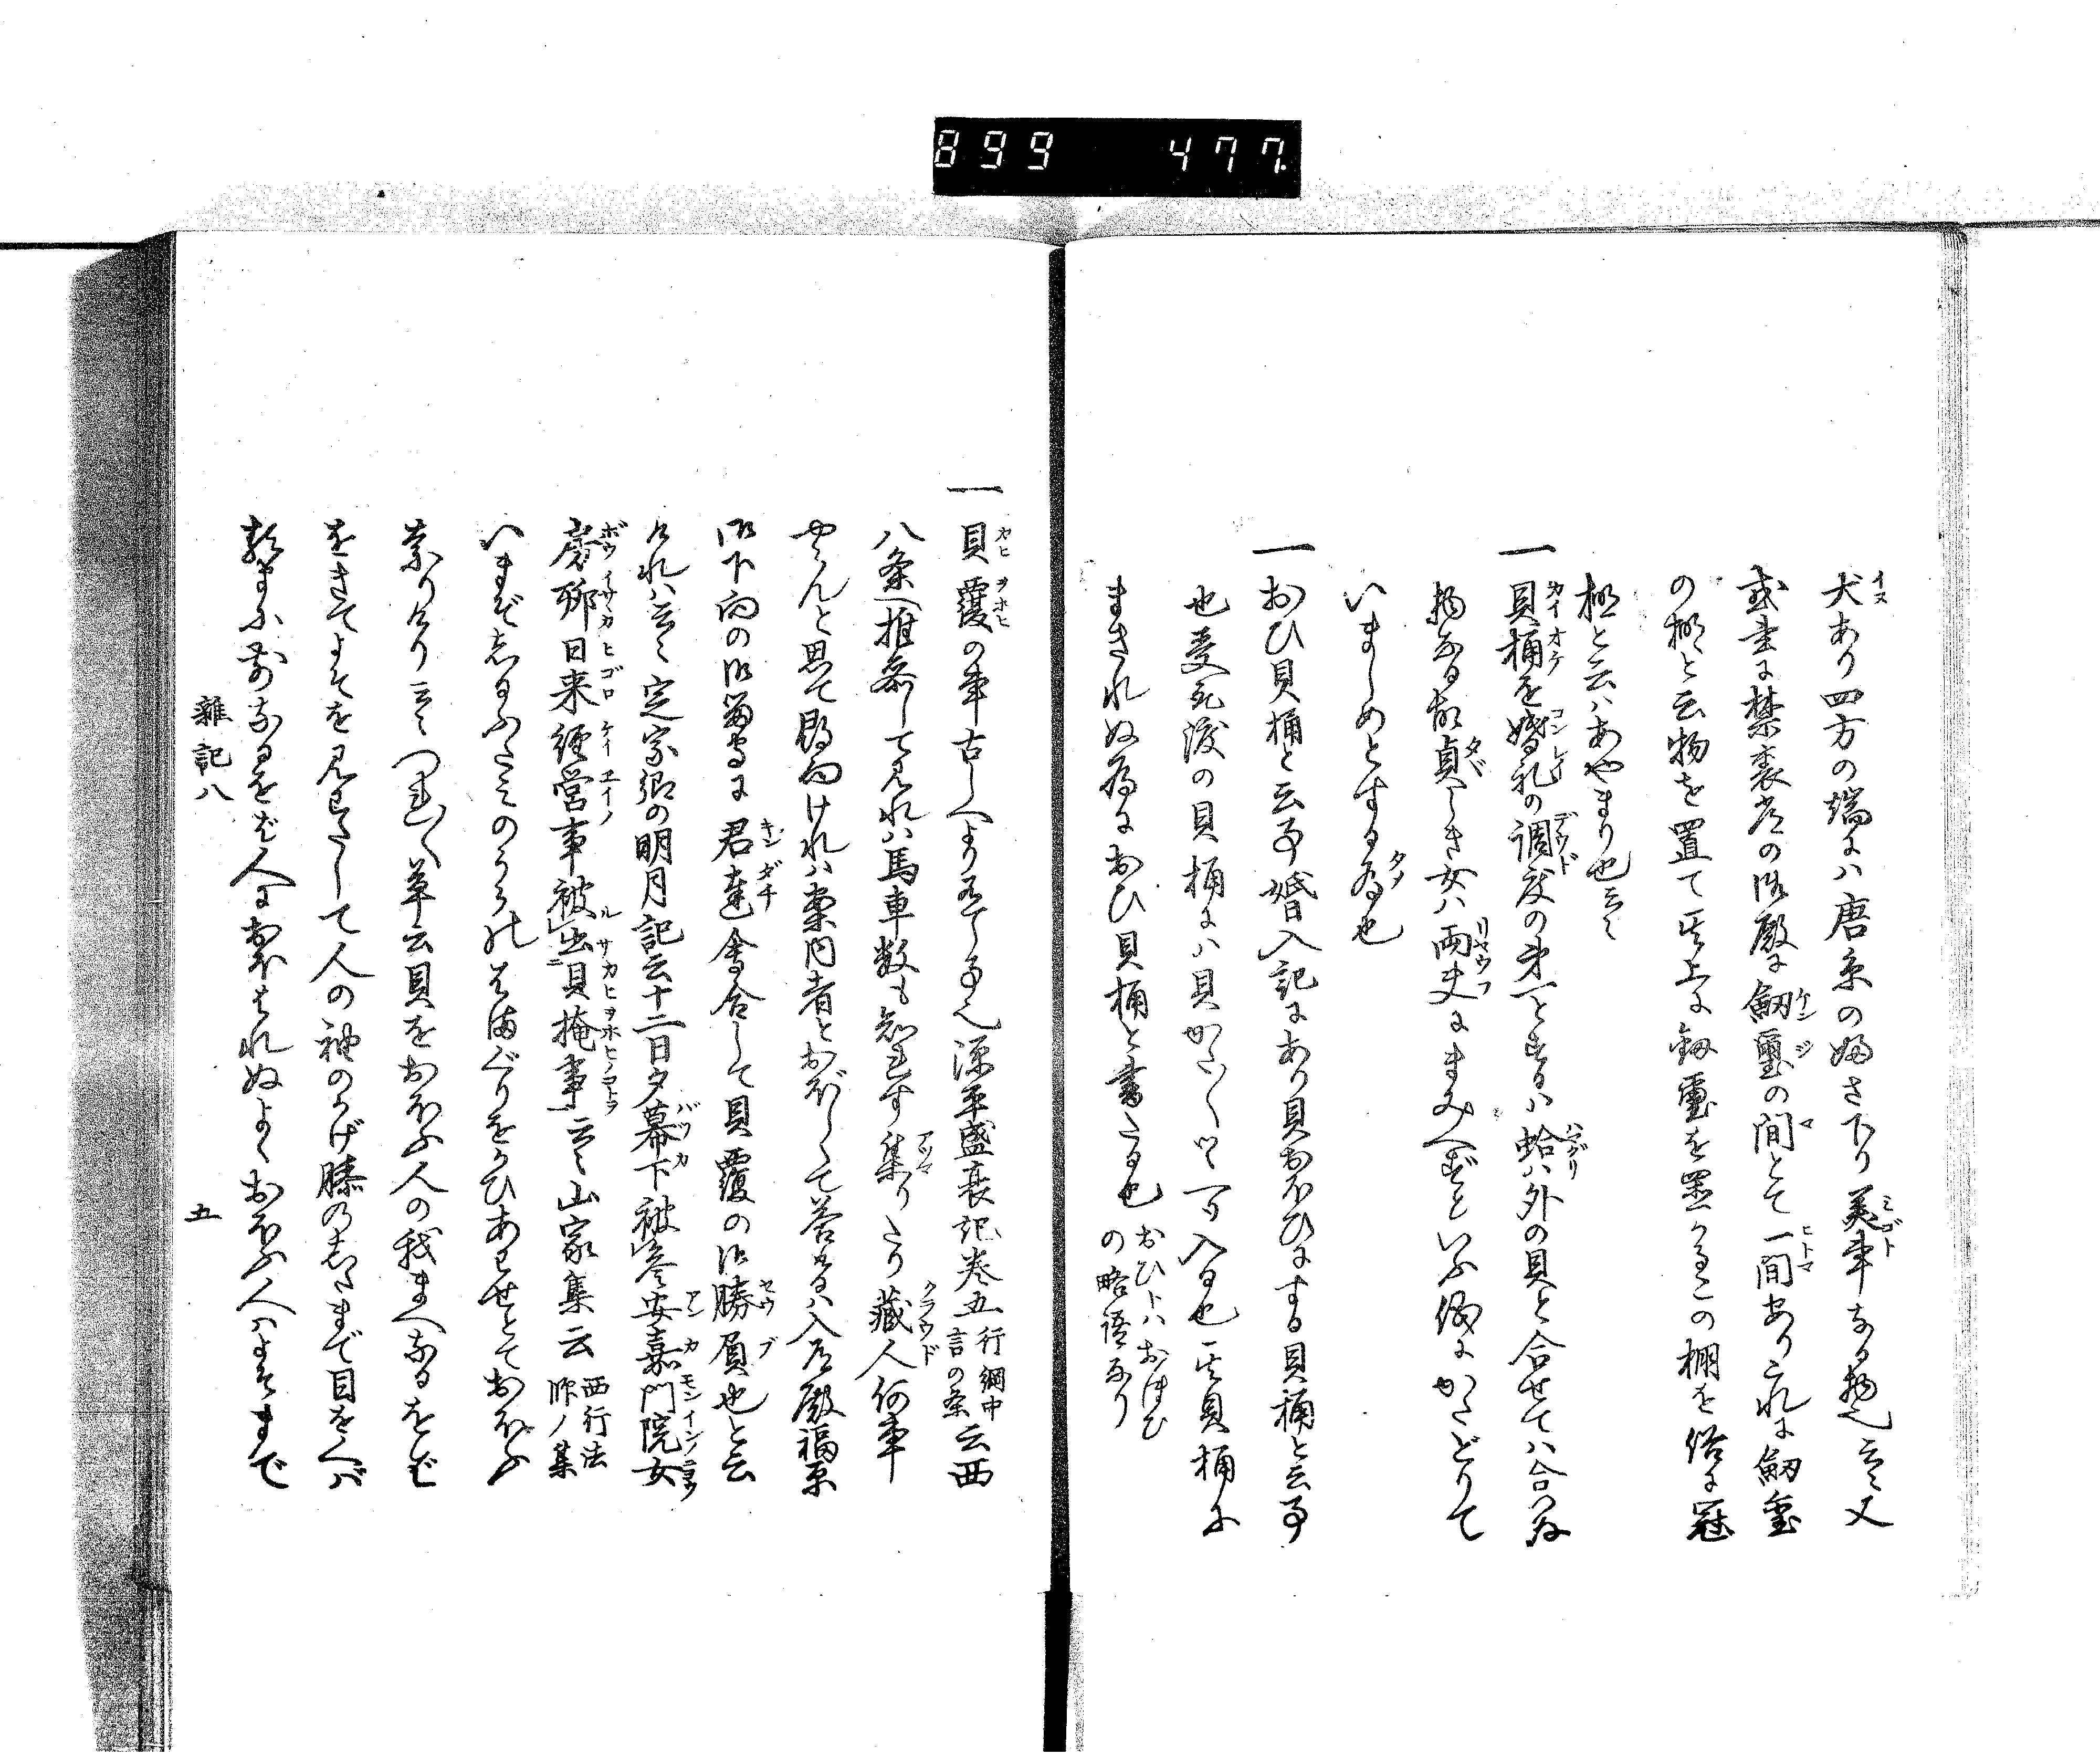 899 477
犬あり四方の端には唐糸の婦さ下り美事なる物也云々又
或書に禁裏常の御殿に劔璽の間とて一間ありこれに劔璽
の棚と云物を置て其上に劔璽を置かるこの棚を俗に冠
棚と云はあやまり也云々
一貝桶を婚礼の調度の第一とするは蛤は外の貝と合せては合ぬ
物なる故貞しき女は両夫にまみへずといふ儀にかたどりて
いましめとする為也
一おひ貝桶と云事婚入記にあり貝おほひにする貝桶と云事
也
まきれぬ為におひ貝桶と書たる也おひトハおほひの略語なり
一貝覆の事古しへより有てる事也源平盛衰記巻五行綱中言の条云西
八条へ推参して見れは馬車数も知らす集りたり蔵人何事
やらんと思て尋問けれは案内者とおぼしくて答けるは入道殿福原
御下向の御留守に君達会合して貝覆の御勝負也と云
けれは云々定家卿の明月記云十二日夕幕下被参安嘉門院女
房聊日来経営事被出貝掩事云々山家集云西行法師ノ集
いまぞしるふたみのうらのはまぐりをかひあはせとておほふ
なりけり云々つれ〳〵草云貝をおほふ人の我まへなるをば
をきてよそを見わたして人の袖のかげ膝の下まで目をくば
るまに前なるをば人におほはれぬよくおほふ人はよそまで
雑記八
五